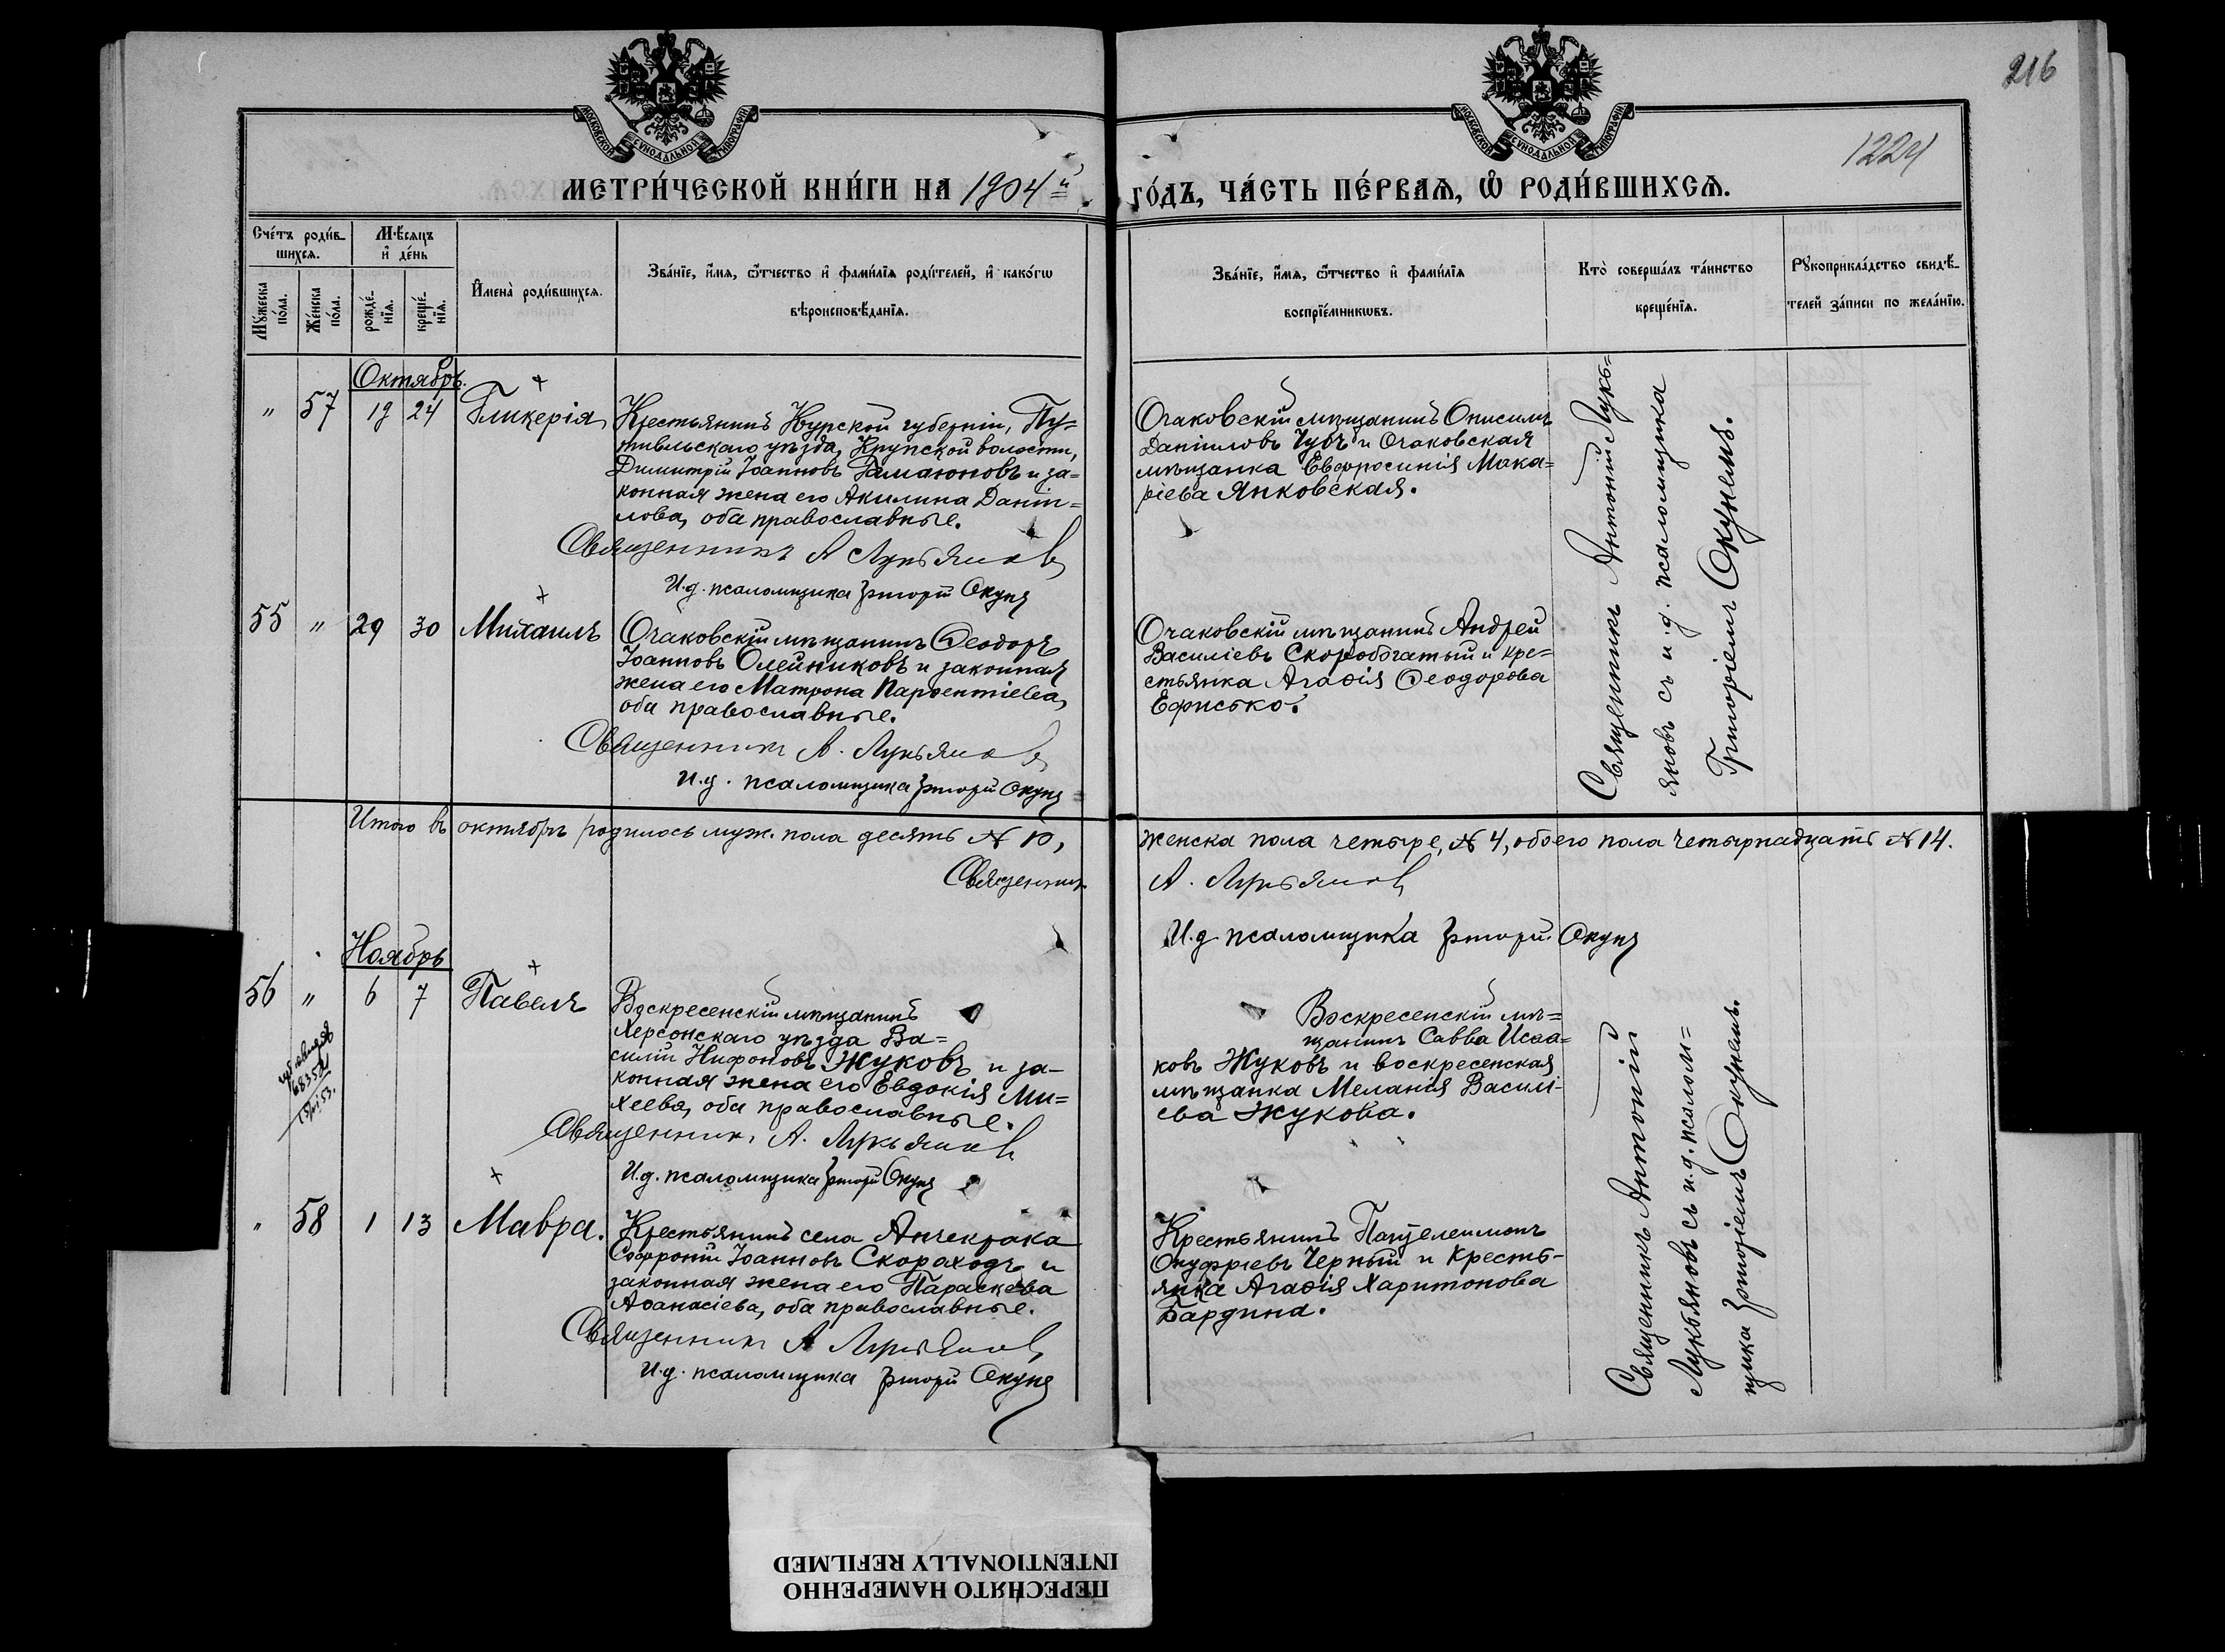 216
1224
МОСКОВСКОЙ СУНОДАЛЬНОЙ ТИПОГРАФІИ
МОСКОВСКОЙ СУНОДАЛЬНОЙ ТИПОГРАФІИ
МЕТРИ́ЧЕСКОЙ КНИ́ГИ НА 1904й
ГО́ДЪ, ЧА́СТЬ ПЕ́РВАѦ, Ѡ РОДИ́ВШИХСѦ.
Сче́тъ роди́в-
шихсѧ.
Мꙋ́жеска по́ла.
Же́нска по́ла.
Мѣ́сѧцъ
и де́нь
рожде́-
нїѧ.
креще́-
нїѧ.
Имена̀ роди́вшихсѧ.
Зва́нїе, и́мѧ, ѻ́тчество и фами́лїѧ роди́телей, и како́гѡ
вѣроисповѣ́данїѧ.
Зва́нїе, и́мѧ, ѻ́тчество и фами́лїѧ
воспрїе́мникѡвъ.
Кто̀ соверша́лъ та́инство
креще́нїѧ.
Рꙋкоприкла́дство свидѣ́-
телей за́писи по жела́нїю.
Октябрь.
" 57 19 24 Гликерія
Крестьянинъ Курской губерніи, Пу=
тивльскаго уѣзда, Крупской волости,
Димитрій Іоанновъ Гамаюновъ и за=
конная жена его Акилина Даніи=
лова, оба православные.
Священникъ А Лукьянов
И.д. псаломщика Григорій Окунь
Очаковскій мѣщанинъ Онисимъ
Даніиловъ Чубъ и Очаковская
мѣщанка Евфросинія Мака=
ріева Янковская.
Священникъ Антоній Лукь=
яновъ съ и.д. псаломщика
Григоріемъ Окунемъ.
55 " 29 30 Михаилъ
Очаковскій мѣщанинъ Ѳеодоръ
Іоанновъ Олейниковъ и законная
жена его Матрона Парѳентіева,
оба православные.
Священникъ А. Лукьянов
И.д. псаломщика Григорій Окунь
Очаковскій мѣщанинъ Андрей
Василіевъ Скоробогатый и кре=
стьянка Агаѳія Ѳеодорова
Ефисько.
Итого въ октябрѣ родилось муж. пола десять № 10,
женска пола четыре, № 4, обоего пола четырнадцать № 14.
Священник
А. Лукьянов
И.д псаломщика Григорій Окунь
Ноябрь
56 " 6 7 Павелъ
68352
Воскресенскій мѣщанинъ
Херсонскаго уѣзда Ва=
силій Нифоновъ Жуковъ и за-
конная жена его Евдокія Ми=
хеева, оба православные.
Священник А. Лукьянов
И.д. псаломщика Григорій Окунь
Воскресенскій мѣ=
щанинъ Савва Исаа=
ковъ Жуковъ и воскресенская
мѣщанка Меланія Василі-
ева Жукова.
Священникъ Антоній
Лукьяновъ съ и.д. псалом=
щика Григоріемъ Окунемъ.
" 58 1 13 Мавра.
Крестьянинъ села Анчекрака
Софроній Іоанновъ Скороходъ и
законная жена его Параскева
Аѳанасіева, оба православные.
Священник А Лукьянов
И.д. псаломщика Григорій Окунь
Крестьянинъ Пантелеимонъ
Онуфріевъ Черный и Кресть-
янка Агаѳія Харитонова
Бардина.
ПЕРЕСНЯТО НАМЕРЕННО
INTENTIONALLY REFILMED